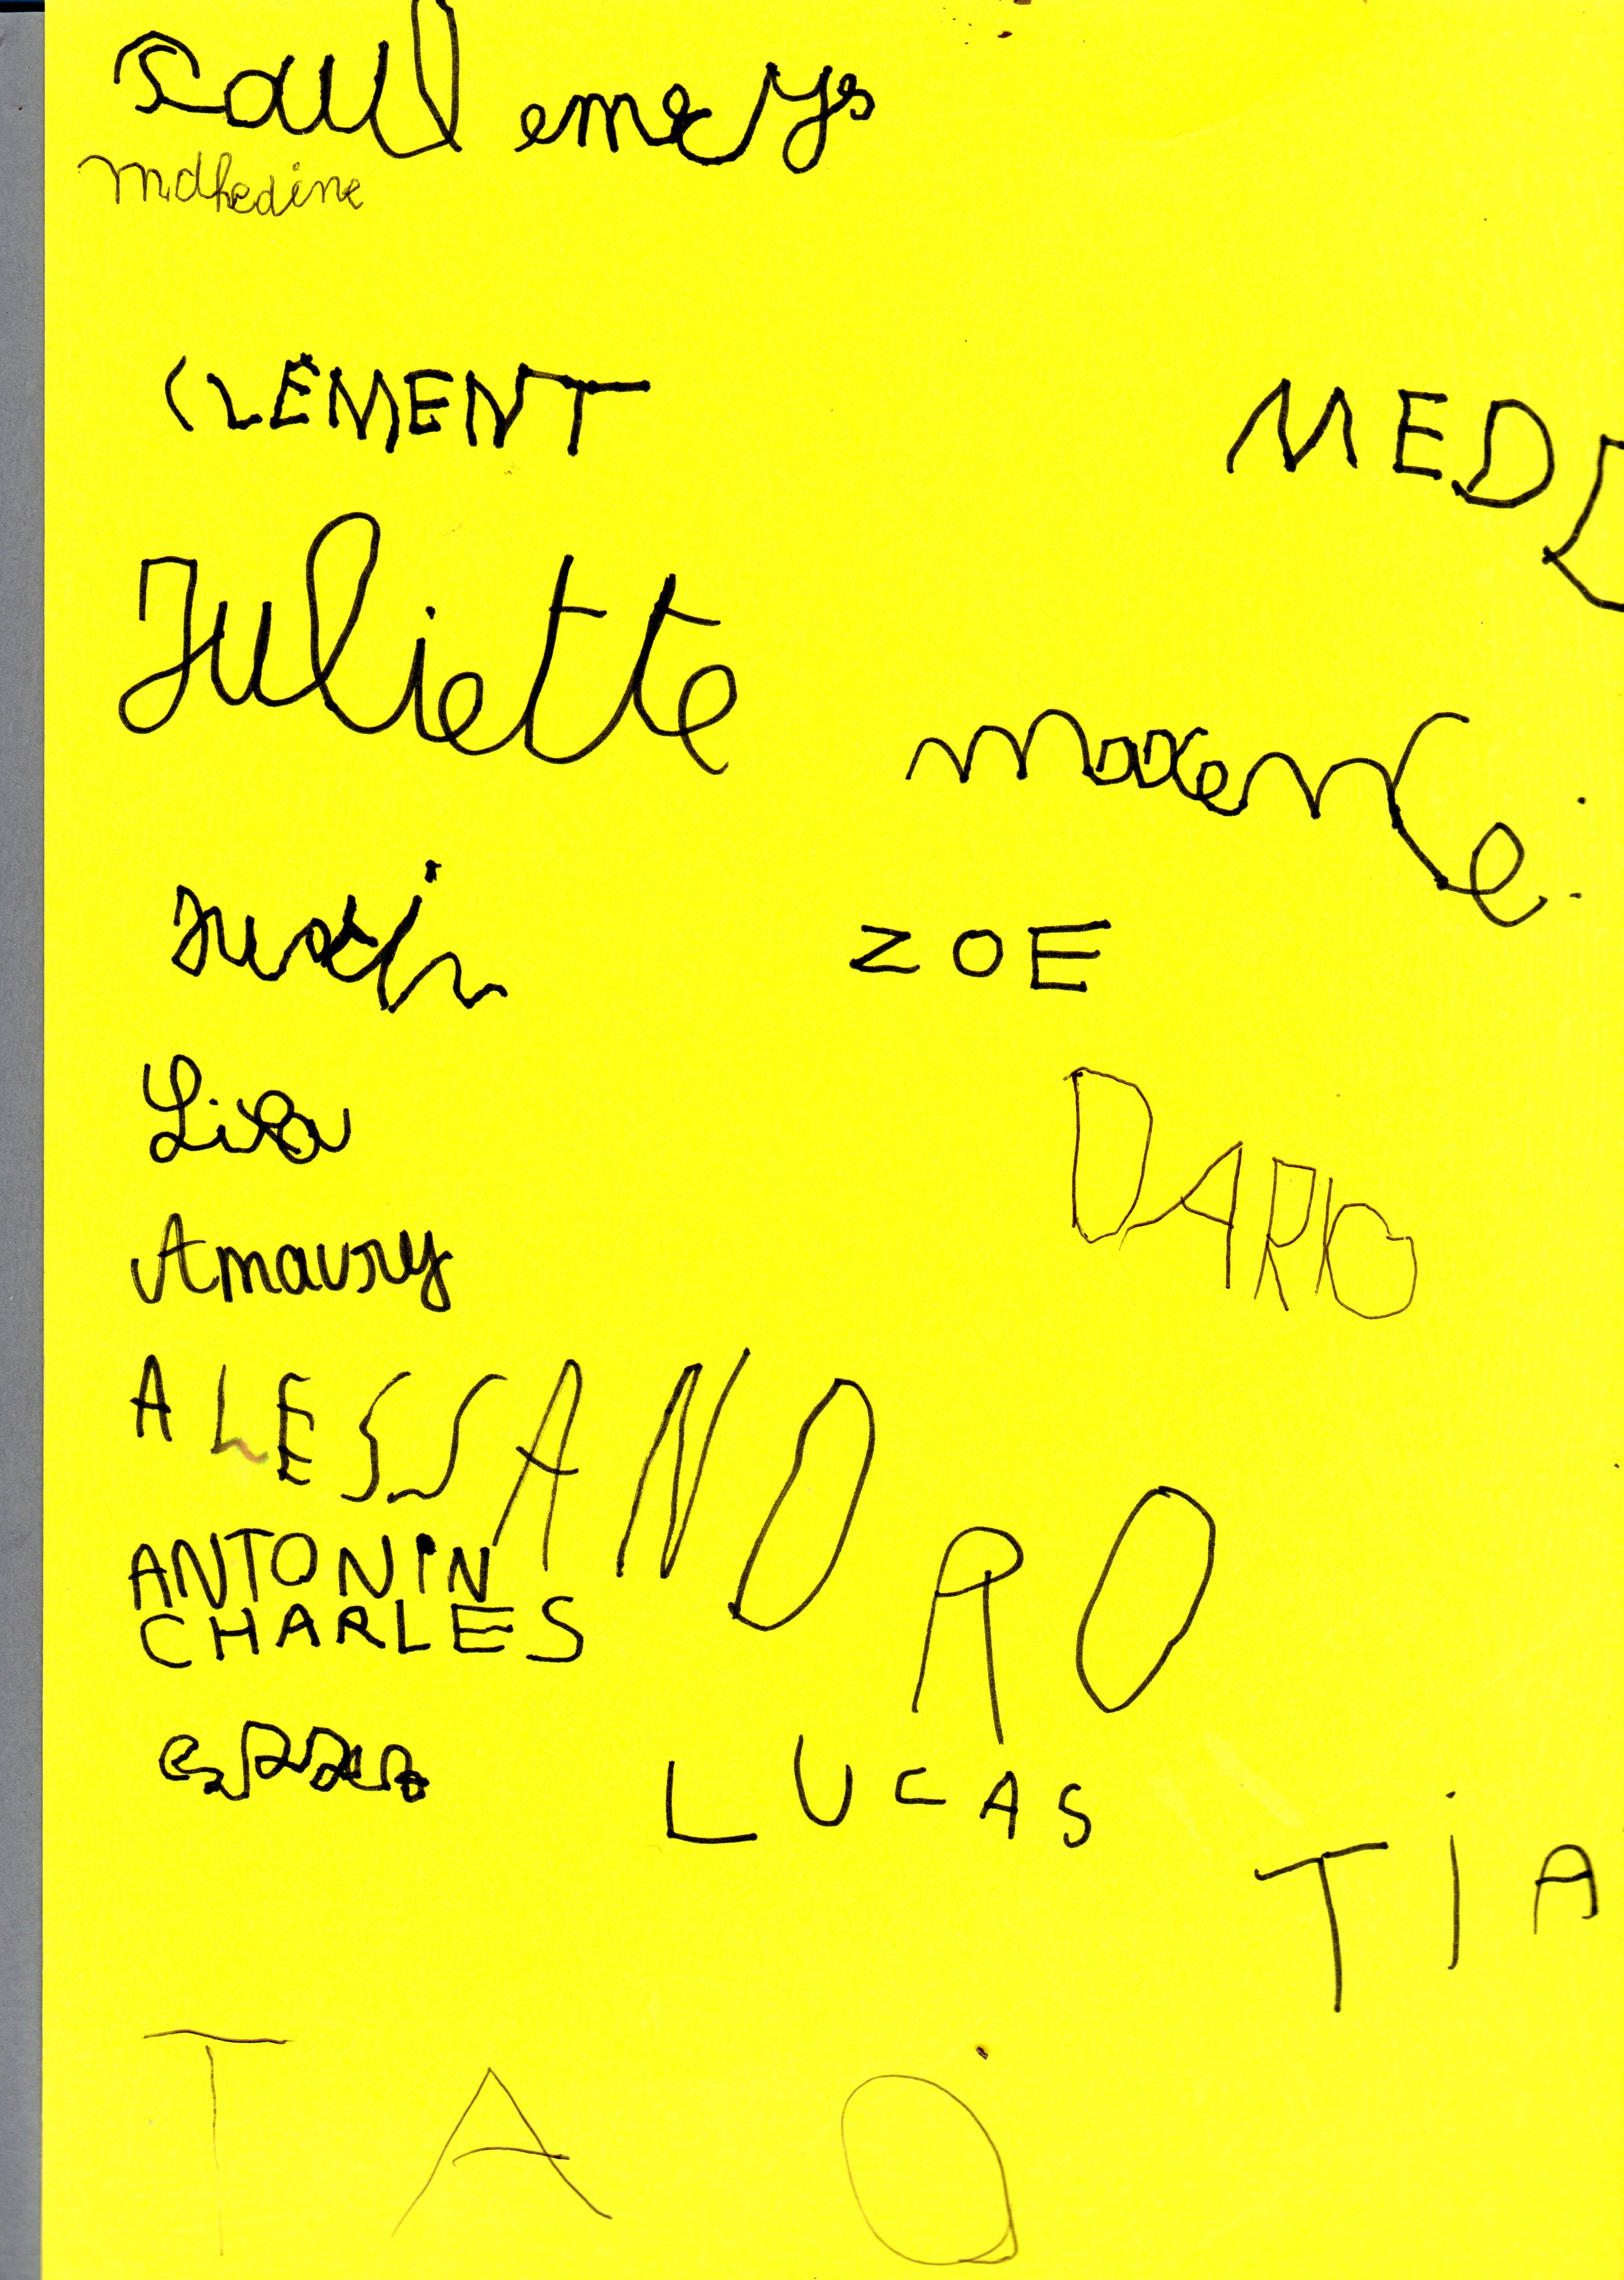 Raul emerys
Mdhedine
CLÉMENT
MED
Juliette
Maxence
Justin
ZOE
Lisa
DARIO
Amaury
ALESSANDRO
ANTONIN
CHARLES
LUCAS
TIA
TAO